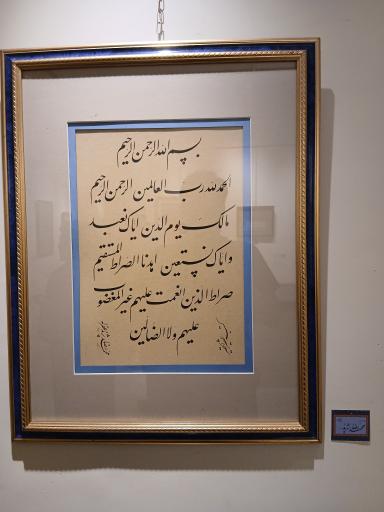 بسم الله الرحمن الرحیم
الحمدلله رب العالمین الرحمن الرحیم
مالک یوم الدین ایاک نعبد
وایاک نستعین اهدنا الصراط المستقیم
صراط الذین انعمت علیهم غیر المغضوب
علیهم ولا الضالین